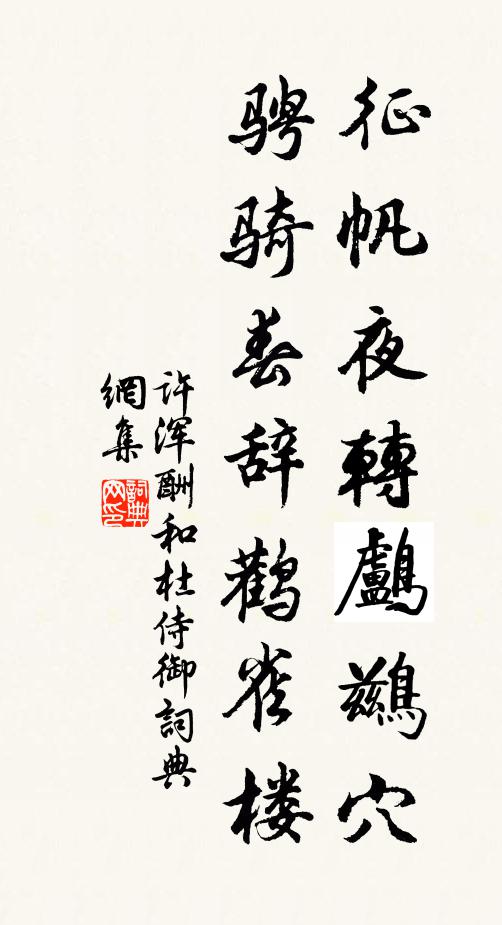 征帆夜轉鸕鷀穴
骋骑春辞鹳雀楼
许浑酬和杜侍御詞典
網集
詞典
网印